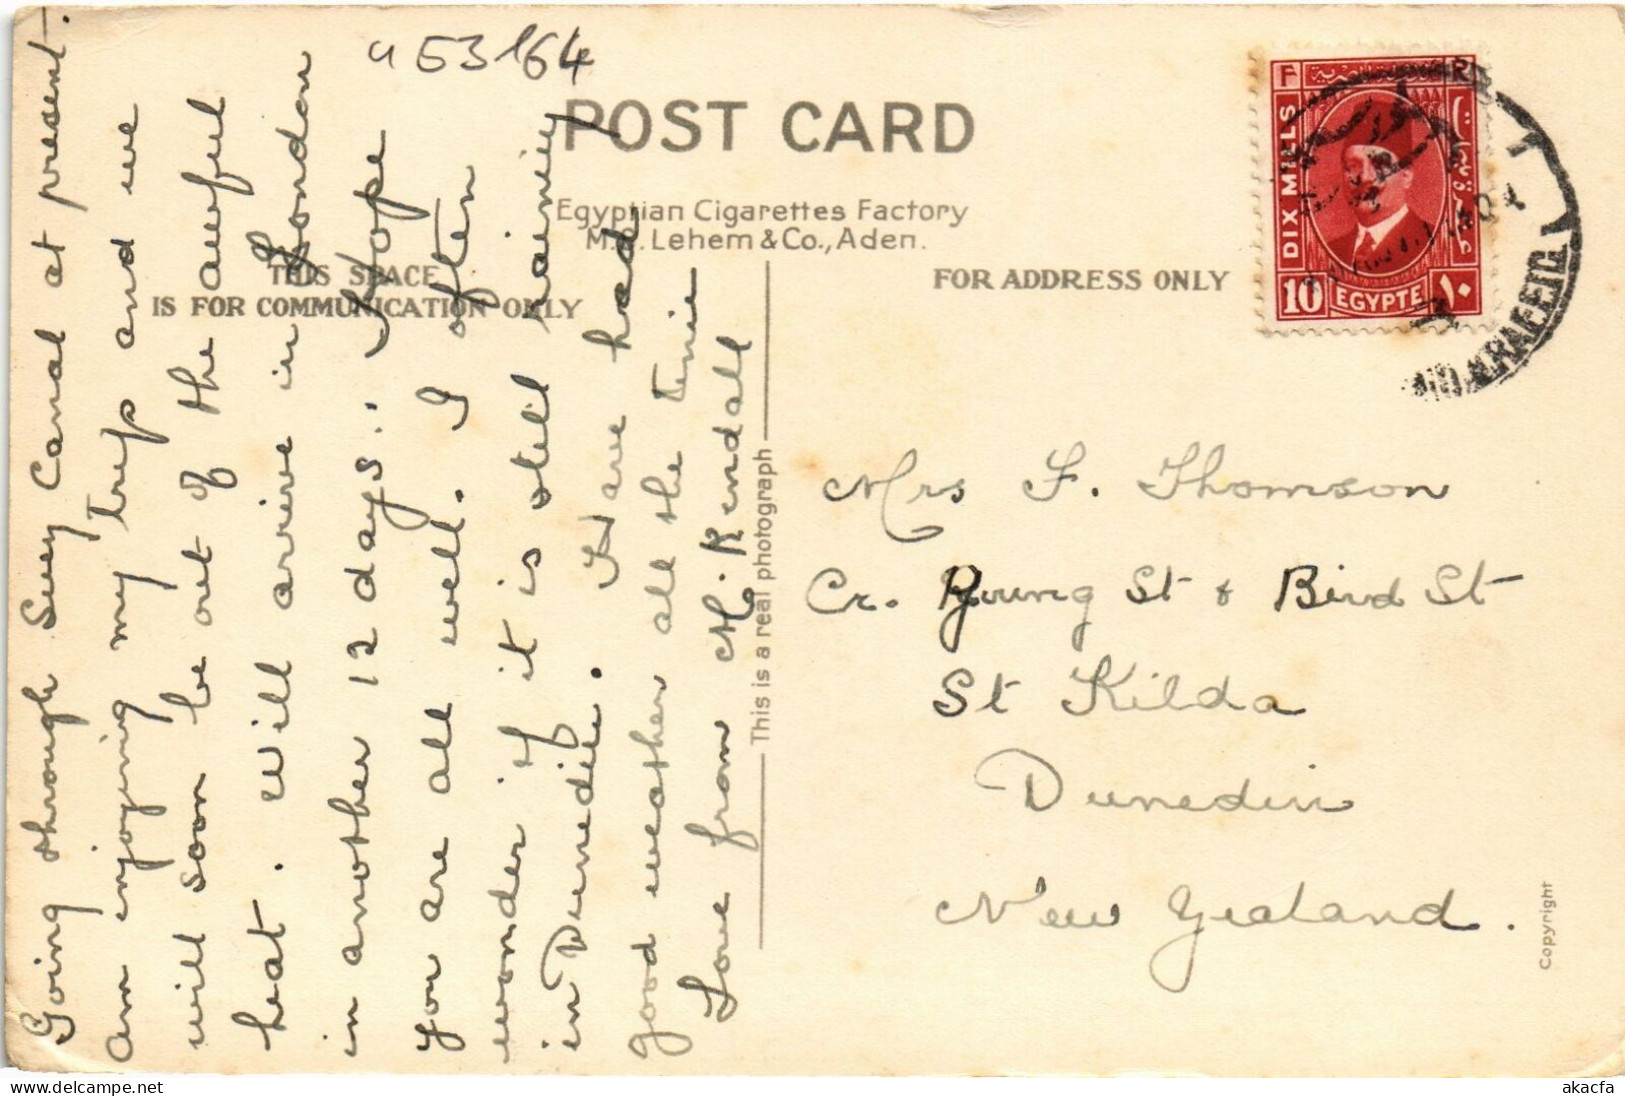 a53164
POST CARD
Egyptian Cigarettes Factory
M.S. Lehem & Co., Aden.
THIS SPACE
IS FOR COMMUNICATION ONLY
FOR ADDRESS ONLY
Going through Suez Canal at present.
am injoying my trip and we
will soon be out of the awful
heat. Will arrive in London
in another 12 days. Hope
you are all well. I often
wonder if it is still rainy
in Dunedin. Have had
good weather all the time
Love from M. Kendall
This is a real photograph
F R
المصرية
DIX MILLS
10 EGYPTE ١٠
Mrs F. Thomson
Cr. Young St & Bird St
St Kilda
Dunedin
New Zealand.
Copyright
delcampe.net
akacfa